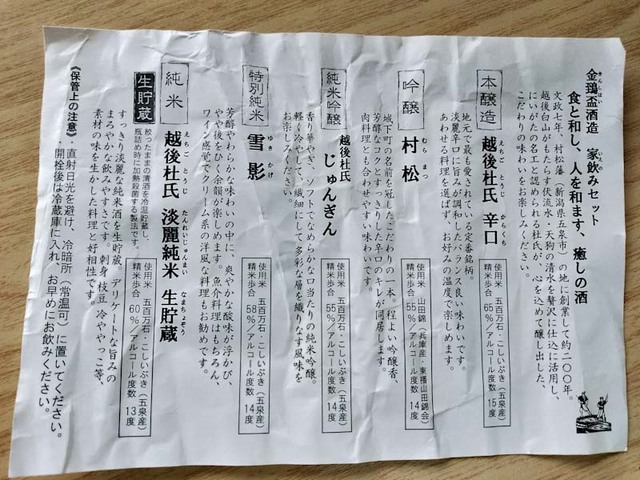 金鵄盃酒造 家飲みセット
食と和し、人を和ます、癒しの酒
文政七年、村松藩(新潟県五泉市)の地に創業して約二〇〇年。
越後白山がもたらす伏流水・天狗の清水を贅沢に仕込に活用し、
にいがたの名工と認められる杜氏が、心を込めて醸し出した、
こだわりの味わいをお楽しみください。
本醸造
越後杜氏 辛口
えちごとうじ からくち
使用米 五百万石・こしいぶき(五泉産)
精米歩合 65%/アルコール度数 15度
地元で最も愛されている定番銘柄。
淡麗辛口に旨みが調和したバランス良い味わいです。
あわせる料理を選ばず、お好みの温度で楽しめます。
吟醸
村松
むらまつ
使用米 山田錦(兵庫産・東播山田錦会)
精米歩合 55%/アルコール度数 14度
城下町の名前を冠したこだわりの一本。程よい吟醸香、
芳醇なコクとすっきりした辛口のキレが同居します。
肉料理とも合わせやすい味わいです。
純米吟醸
越後杜氏 じゅんぎん
えちごとうじ
使用米 五百万石・こしいぶき(五泉産)
精米歩合 55%/アルコール度数 14度
香り華やぎ、ソフトでなめらかな口当たりの純米吟醸。
軽く冷やして、繊細にして多彩な層を織りなす風味を
お楽しみください。
特別純米
雪影
ゆきかげ
使用米 五百万石・こしいぶき(五泉産)
精米歩合 58%/アルコール度数 14度
芳醇やわらかな味わいの中に、爽やかな酸味が浮かび、
やや後をひく余韻が楽しめます。魚介料理はもちろん、
ワイン感覚でクリーム系の洋風な料理もお勧めです。
純米
越後杜氏 淡麗純米 生貯蔵
えちごとうじ たんれいじゅんまい なまちょぞう
生貯蔵
搾ったままの清酒を冷温貯蔵し、
瓶詰め時に加熱殺菌する製法です。
使用米 五百万石・こしいぶき(五泉産)
精米歩合 60%/アルコール度数 13度
すっきり淡麗な純米酒を生貯蔵。デリケートな旨みの
まろやかな飲みやすさです。刺身 枝豆 冷ややっこ等、
素材の味を生かした料理と好相性です。
《保管上の注意》・直射日光を避け、冷暗所(常温可)に置いてください。
開栓後は冷蔵庫に入れ、お早めにお飲みください。